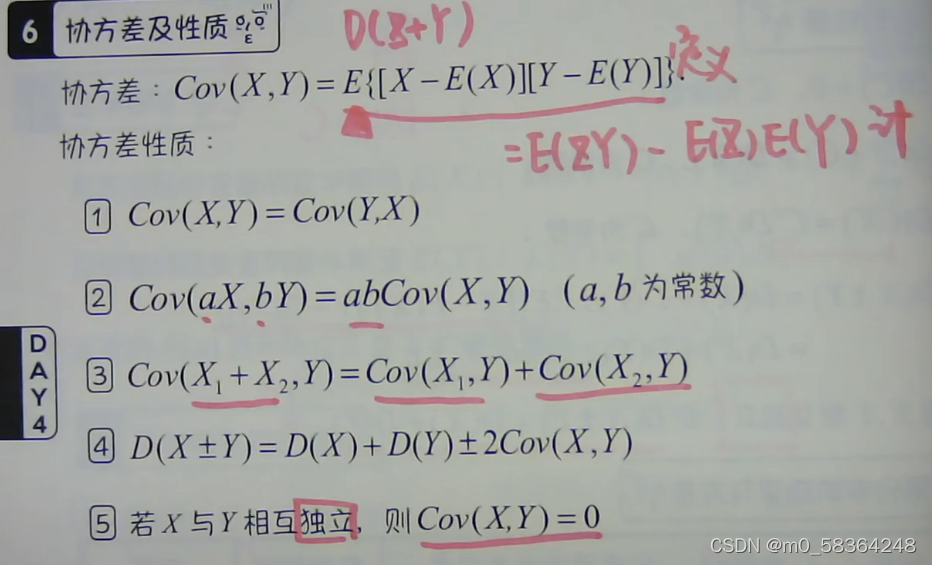 6 协方差及性质
D(X+Y)
协方差: Cov(X,Y)=E{[X-E(X)][Y-E(Y)]}. 定义
=E(XY)-E(X)E(Y) 计
协方差性质:
1 Cov(X,Y)=Cov(Y,X)
2 Cov(aX,bY)=abCov(X,Y) (a,b为常数)
3 Cov(X₁+X₂,Y)=Cov(X₁,Y)+Cov(X₂,Y)
DAY4
4 D(X±Y)=D(X)+D(Y)±2Cov(X,Y)
5 若X与Y相互独立, 则Cov(X,Y)=0
CSDN @m0_58364248